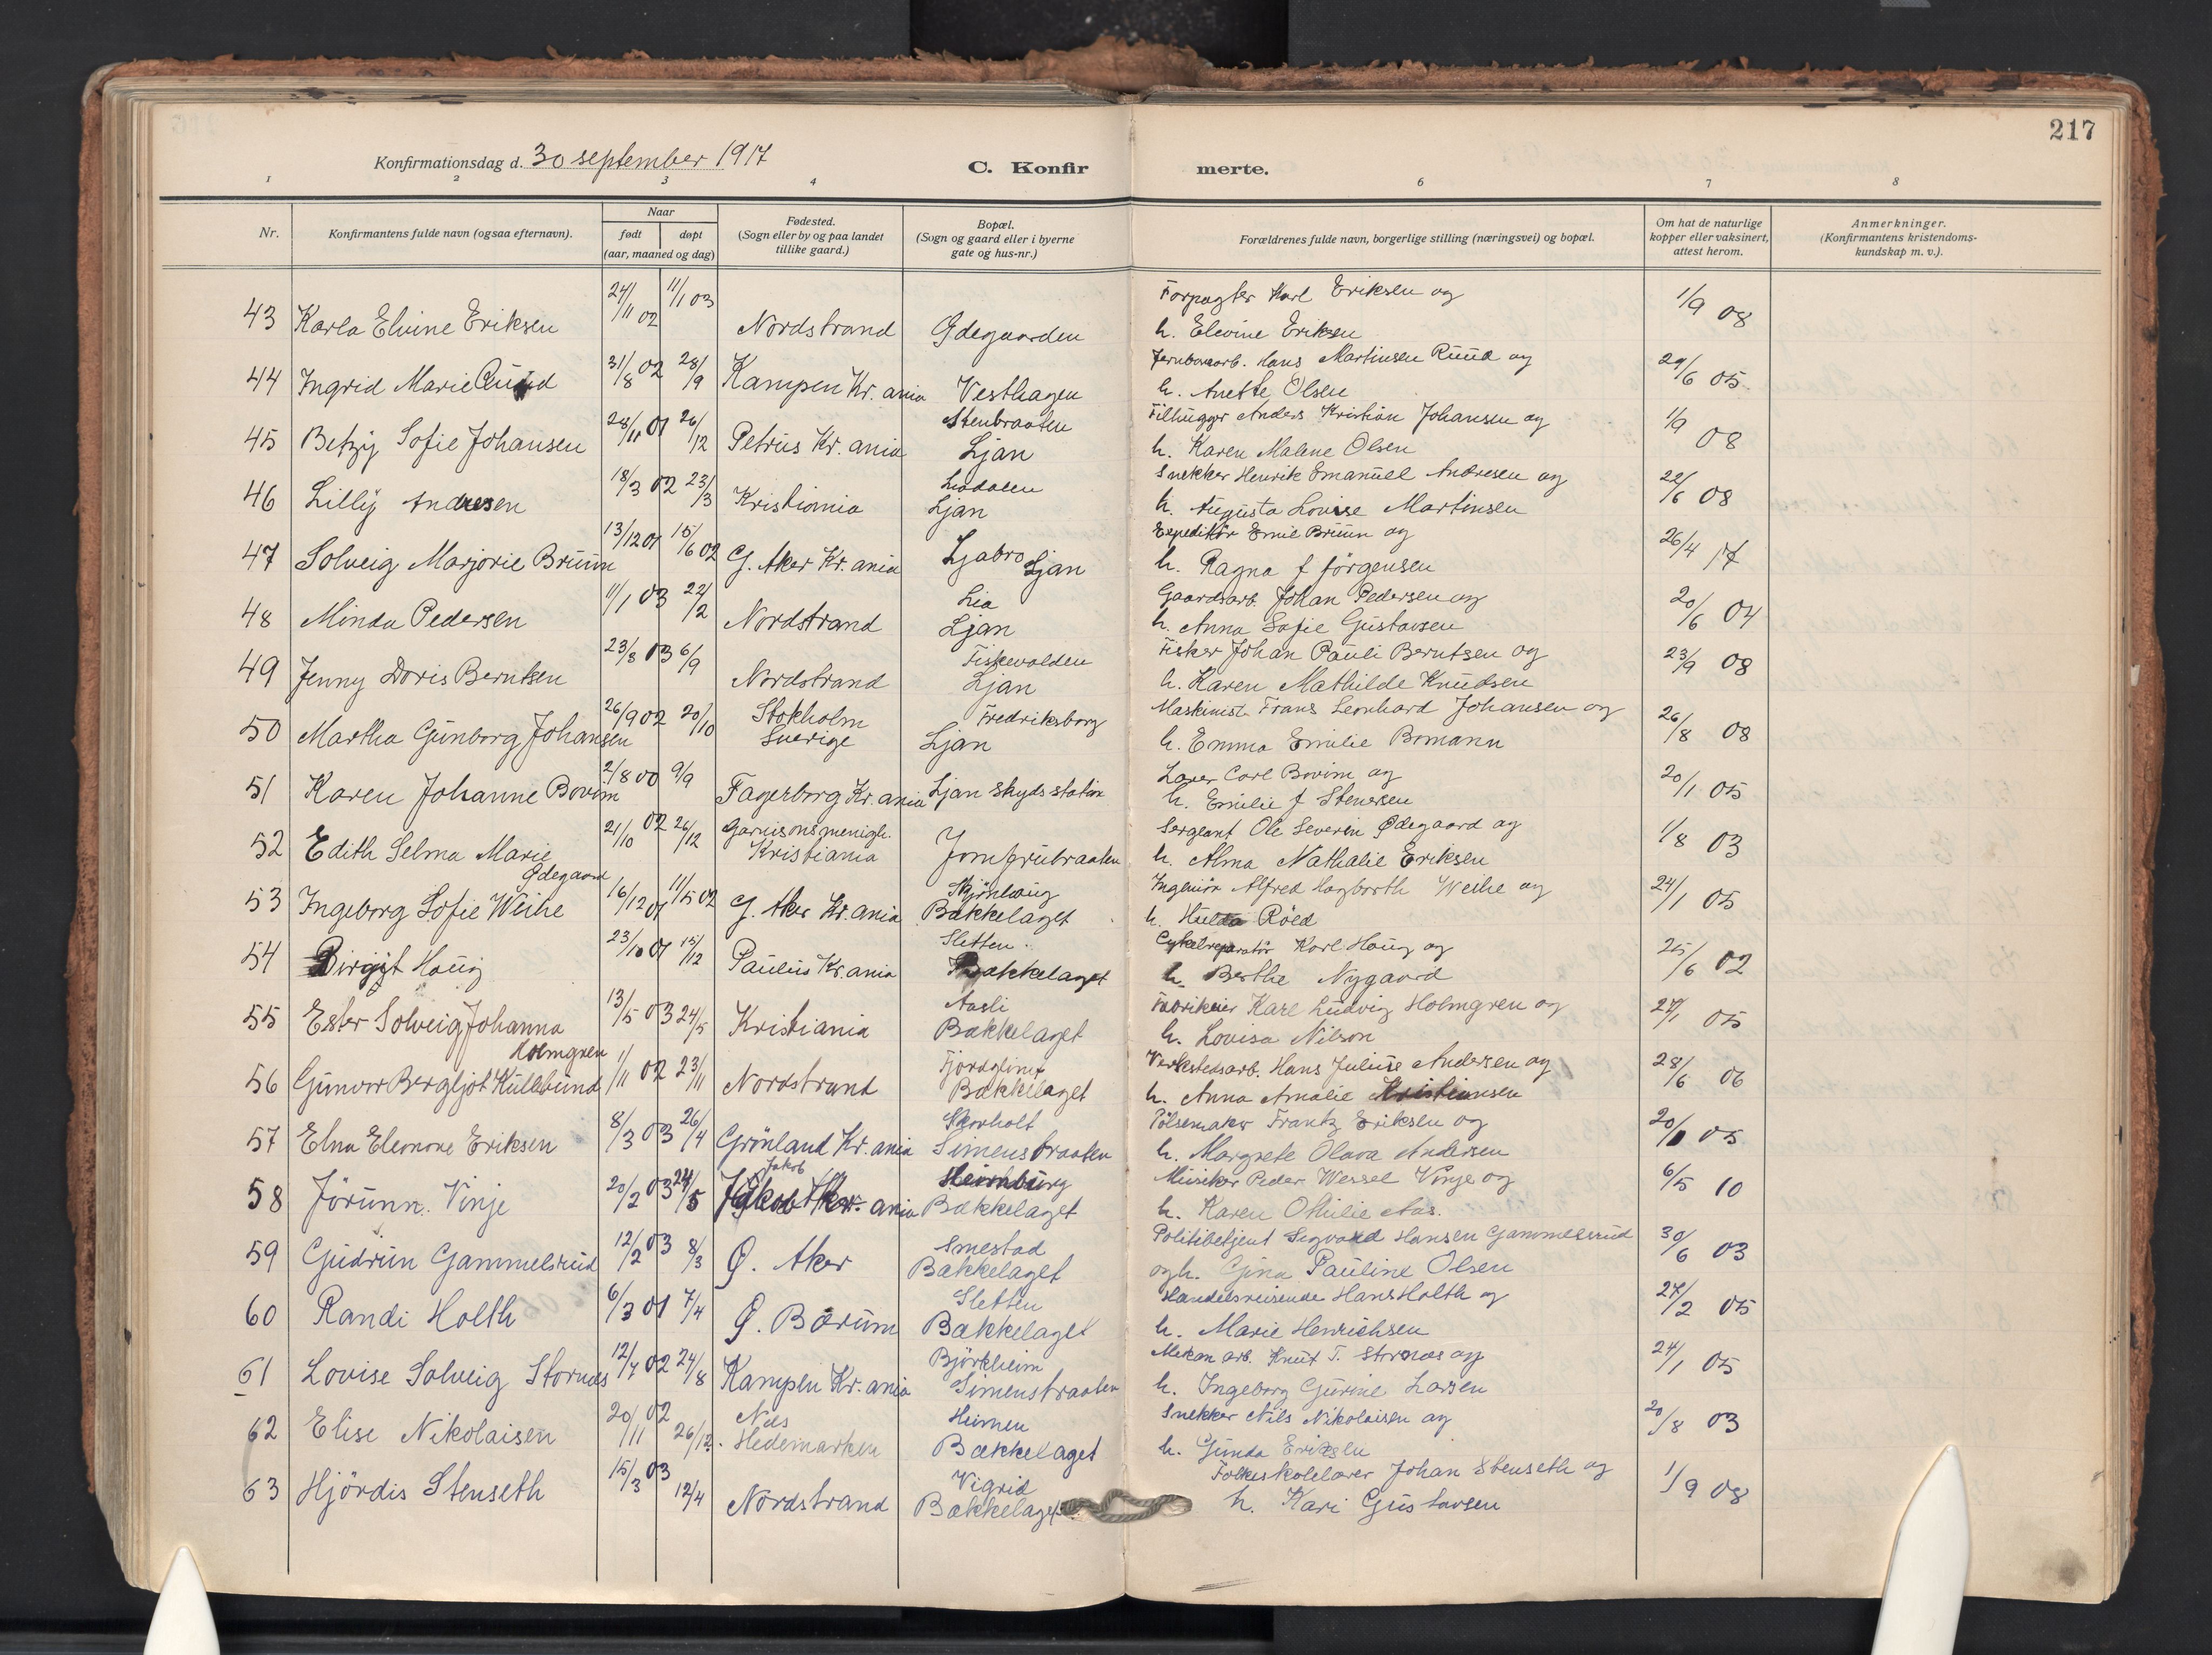 217
Konfirmationsdag d. 30 september 1917
C. Konfirmerte.
1 2 3 4 6 7 8
Nr.
Konfirmantens fulde navn (ogsaa efternavn).
Naar
født døpt
(aar, maaned og dag)
Fødested.
(Sogn eller by og paa landet
tillike gaard.)
Bopæl.
(Sogn og gaard eller i byerne
gate og hus-nr.)
Forældrenes fulde navn, borgerlige stilling (næringsvei) og bopæl.
Om hat de naturlige
kopper eller vaksinert,
attest herom.
Anmerkninger.
(Konfirmantens kristendoms-
kundskap m. v.).
43 Karla Elvine Eriksen 24/11 02 11/1 03 Nordstrand Gdegaarden Forpagter Karl Eriksen og 1/9 08
h. Elevine Eriksen
44 Ingrid Marie Ruud 31/8 02 28/9 Kampen Kr.ania Vesthagen Jernbanearb. Hans Martinsen Ruud og 29/6 05
h. Anette Olsen
45 Betzy Sofie Johansen 28/11 01 26/12 Petrus Kr.ania Stenbraaten Filhugger Anders Kristian Johansen og 1/9 08
Ljan h. Karen Malene Olsen
46 Lilly Andresen 18/3 02 23/3 Kristiania Liadalen Snekker Henrik Emanuel Andresen og 22/6 08
Ljan h. Augusta Lovise Martinsen
47 Solveig Marjorie Bruun 13/12 01 15/6 02 G. Aker Kr.ania Ljabro Ljan Expeditör Emil Bruun og 26/4 17
h. Ragna f Jörgensen
48 Minda Pedersen 11/1 03 22/2 Nordstrand Lia Gaardsarb. Johan Pedersen og 20/6 04
Ljan h. Anna Sofie Gustavsen
49 Jenny Doris Berntsen 23/8 03 6/9 Nordstrand Fiskevolden Fisker Johan Pauli Berntsen og 23/9 08
Ljan h. Karen Mathilde Knudsen
50 Martha Gunborg Johansen 26/9 02 20/10 Stokholm Fredriksborg Maskinist Frans Leonhard Johansen og 26/8 08
Sverige Ljan h. Emma Emilie Bomann
51 Karen Johanne Bovim 2/8 00 9/9 Fagerborg Kr.ania Ljan skydsstation Lærer Carl Bovim og 20/1 05
h. Emilie f Stenersen
52 Edith Selma Marie Ødegaard 21/10 02 26/12 Garnisonsmenigh. Jomfrubraaten Sergeant Ole Severin Ødegaard og 1/8 03
Kristiania h. Alma Nathalie Eriksen
53 Ingeborg Sofie Weihe 16/12 01 11/5 02 G. Aker Kr.ania Ingeniör Alfred Hagbarth Weihe og 24/1 05
Bækkelaget h. Hulda Röed
54 Birgit Haug 23/10 01 15/12 Paulus Kr.ania Sletten Cykelreparatör Karl Haug og 25/6 02
Bækkelaget h. Berthe Nygaard
55 Ester Solveig Johanna Holmgren 13/5 03 24/5 Kristiania Aasli Fabrikeier Karl Ludvig Holmgren og 27/1 05
Bækkelaget h. Lovisa Nilson
56 Gunvor Bergljot Kullebund 1/11 02 23/11 Nordstrand Fjordglimt Verkstedsarb. Hans Julius Andersen og 28/6 06
Bækkelaget h. Anna Amalie Kristiansen
57 Elna Eleonore Eriksen 8/3 03 26/4 Grönland Kr.ania Skovholt Pölsemaker Frantz Eriksen og 20/1 05
Simensbraaten h. Margrete Olava Andersen
58 Jörunn Vinje 20/2 03 24/5 Jakob Kr.ania Heimburg Musiker Peder Wessel Vinje og 6/5 10
Bækkelaget h. Karen Othilie Aas.
59 Gudrun Gammelsrud 12/2 03 8/3 Ø. Aker Smestad Politibetjent Sigvard Hansen Gammelsrud 30/6 03
Bækkelaget og h. Gina Pauline Olsen
60 Randi Holth 6/3 01 7/4 Ø. Bærum Sletten Handelsreisende Hans Holth og 27/2 05
Bækkelaget h. Marie Henrichsen
61 Lovise Solveig Stornæs 12/7 02 24/8 Kampen Kr.ania Björkheim Mekan arb. Knut T. Stornæs og 24/1 05
Simenstraaten h. Ingeborg Gurine Larsen
62 Elise Nikolaisen 20/11 02 26/12. Nes Heimen Snekker Nils Nikolaisen og 20/8 03
Hedemarken Bækkelaget h. Gunda Eriksen
63 Hjördis Stenseth 15/3 03 12/4 Nordstrand Vigrid Folkeskolelærer Johan Stenseth og 1/9 08
Bækkelaget h. Kari Gustavsen